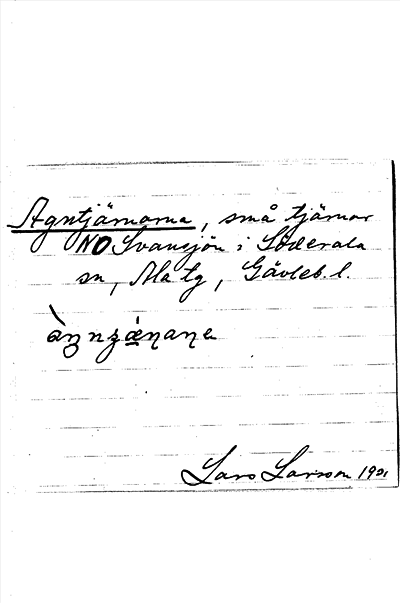 Agntjärnarna, små tjärnar
NO Svansjön i Söderala
sn, Ala tg, Gävleb. l.
àŋnʒǽŋaŋa
Lars Larsson 1921